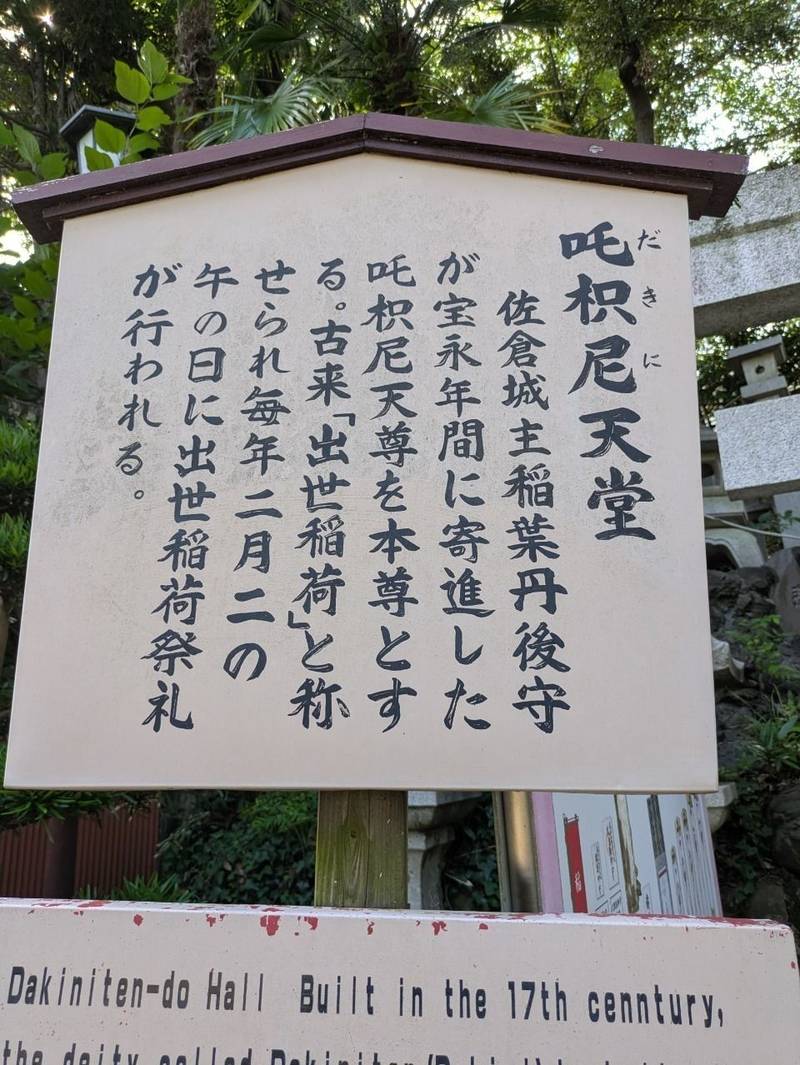 吒枳尼天堂
だきに
佐倉城主稲葉丹後守
が宝永年間に寄進した
吒枳尼天尊を本尊とす
る。古来「出世稲荷」と称
せられ毎年二月二の
午の日に出世稲荷祭礼
が行われる。
Dakiniten-do Hall Built in the 17th cenntury,
the deity called Dakiniten